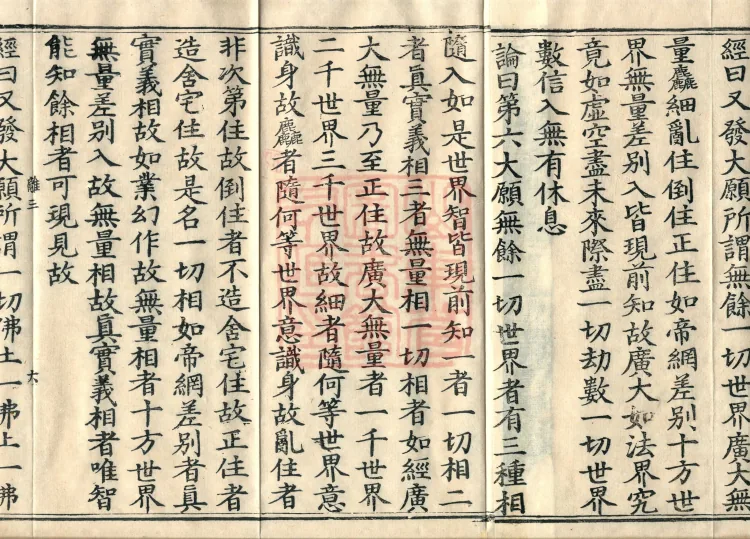 經曰又發大願所謂無餘一切世界廣大無
量麤細亂住倒住正住如帝網差別十方世
界無量差別入皆現前知故廣大如法界究
竟如虛空盡未來際盡一切劫數一切世界
數信入無有休息
論曰第六大願無餘一切世界者有三種相
隨入如是世界智皆現前知一者一切相二
者眞實義相三者無量相一切相者如經廣
大無量乃至正住故廣大無量者一千世界
二千世界三千世界故細者隨何等世界意
識身故麤者隨何等世界意識身故亂住者
非次第住故倒住者不造舍宅住故正住者
造舍宅住故是名一切相如帝網差別者眞
實義相故如業幻作故無量相者十方世界
無量差別入故無量相故眞實義相者唯智
能知餘相者可現見故
離三 六
經曰又發大願所謂一切佛土一佛土一佛